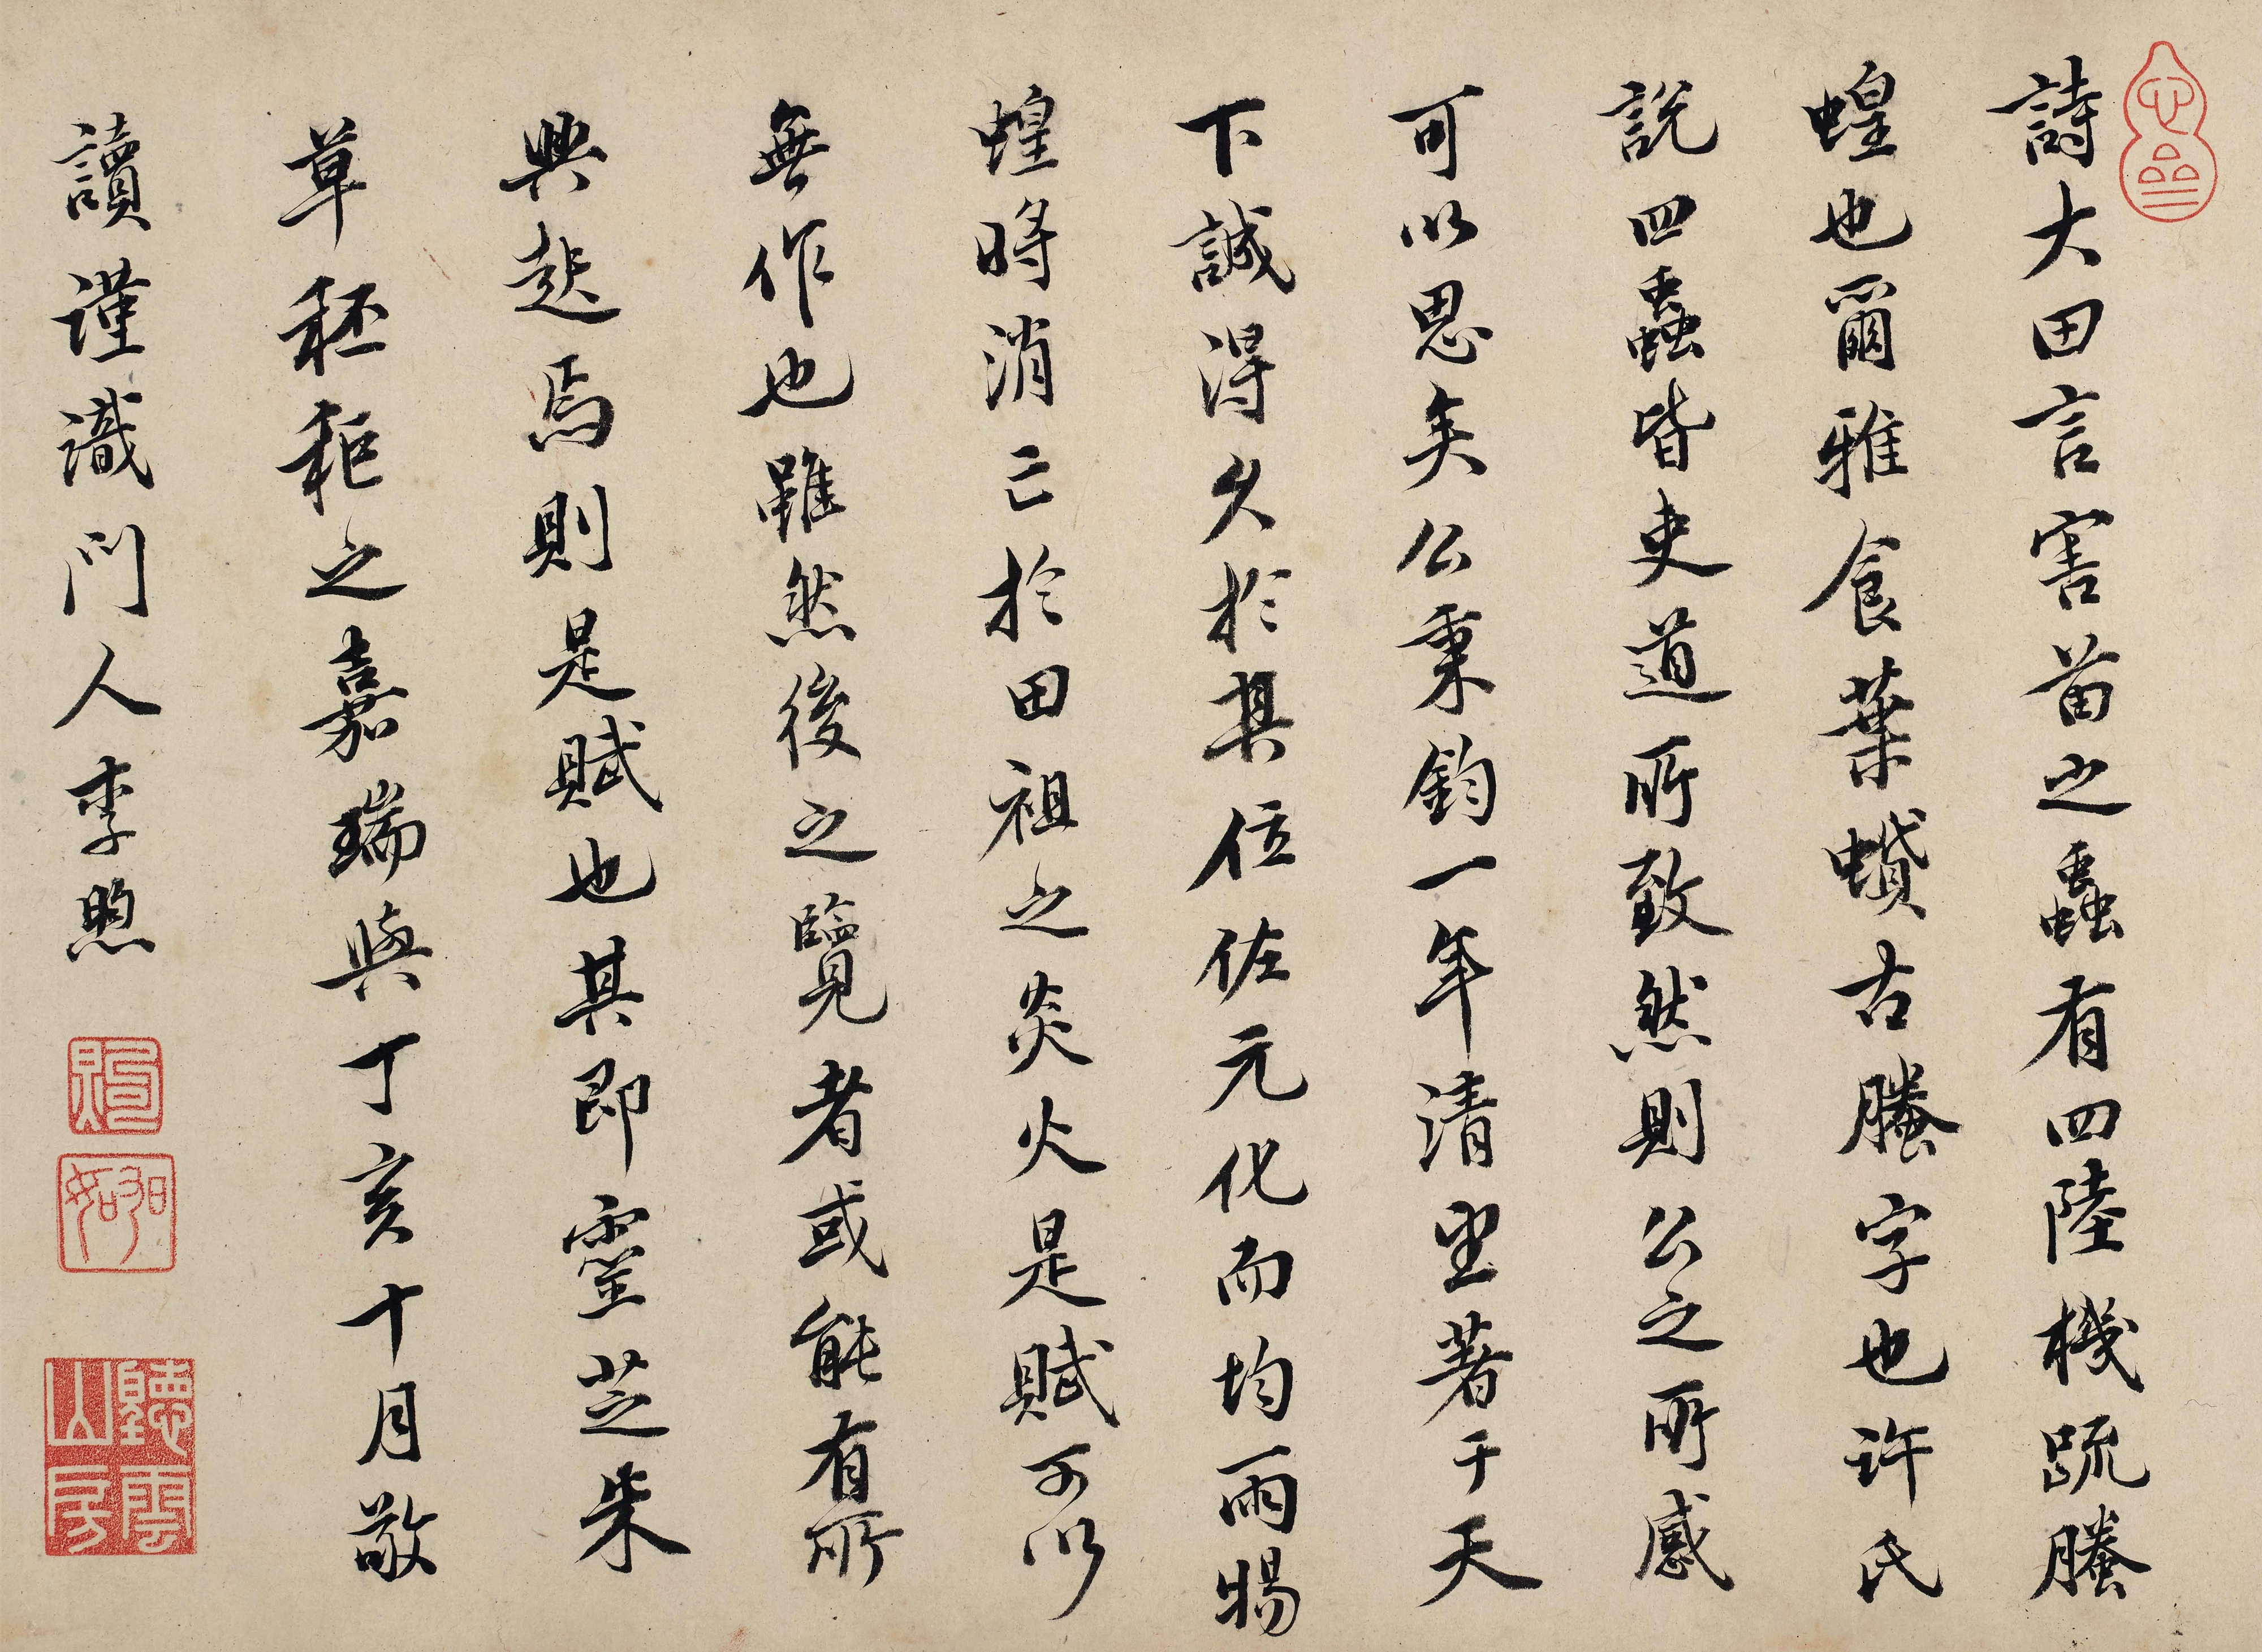 詩大田言害苗之蟲有四陸機疏螣
蝗也爾雅食葉蟘古螣字也許氏
說四蟲皆吏道所致然則公之所感
可以思矣公秉鈞一年清望著于天
下誠得久於其位佐元化而均雨暘
蝗將消亡於田祖之炎火是賦可以
無作也雖然後之覽者或能有所
興起焉則是賦也其即靈芝朱
草秠秬之嘉瑞與丁亥十月敬
讀謹識門人李煦
聽雪山房